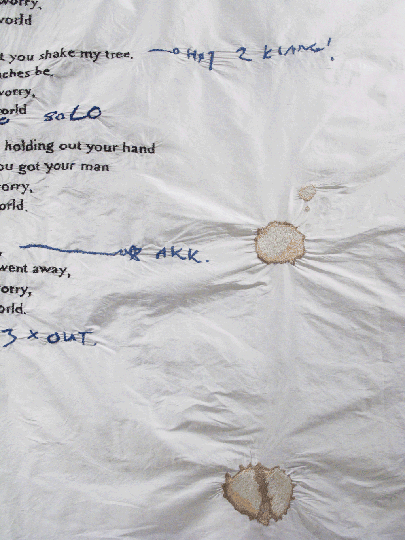 worry,
world
t you shake my tree.
ches be.
worry,
orld
SOLO
holding out your hand
ou got your man
orry,
orld.
AKK.
went away,
orry,
orld.
3 x OUT.